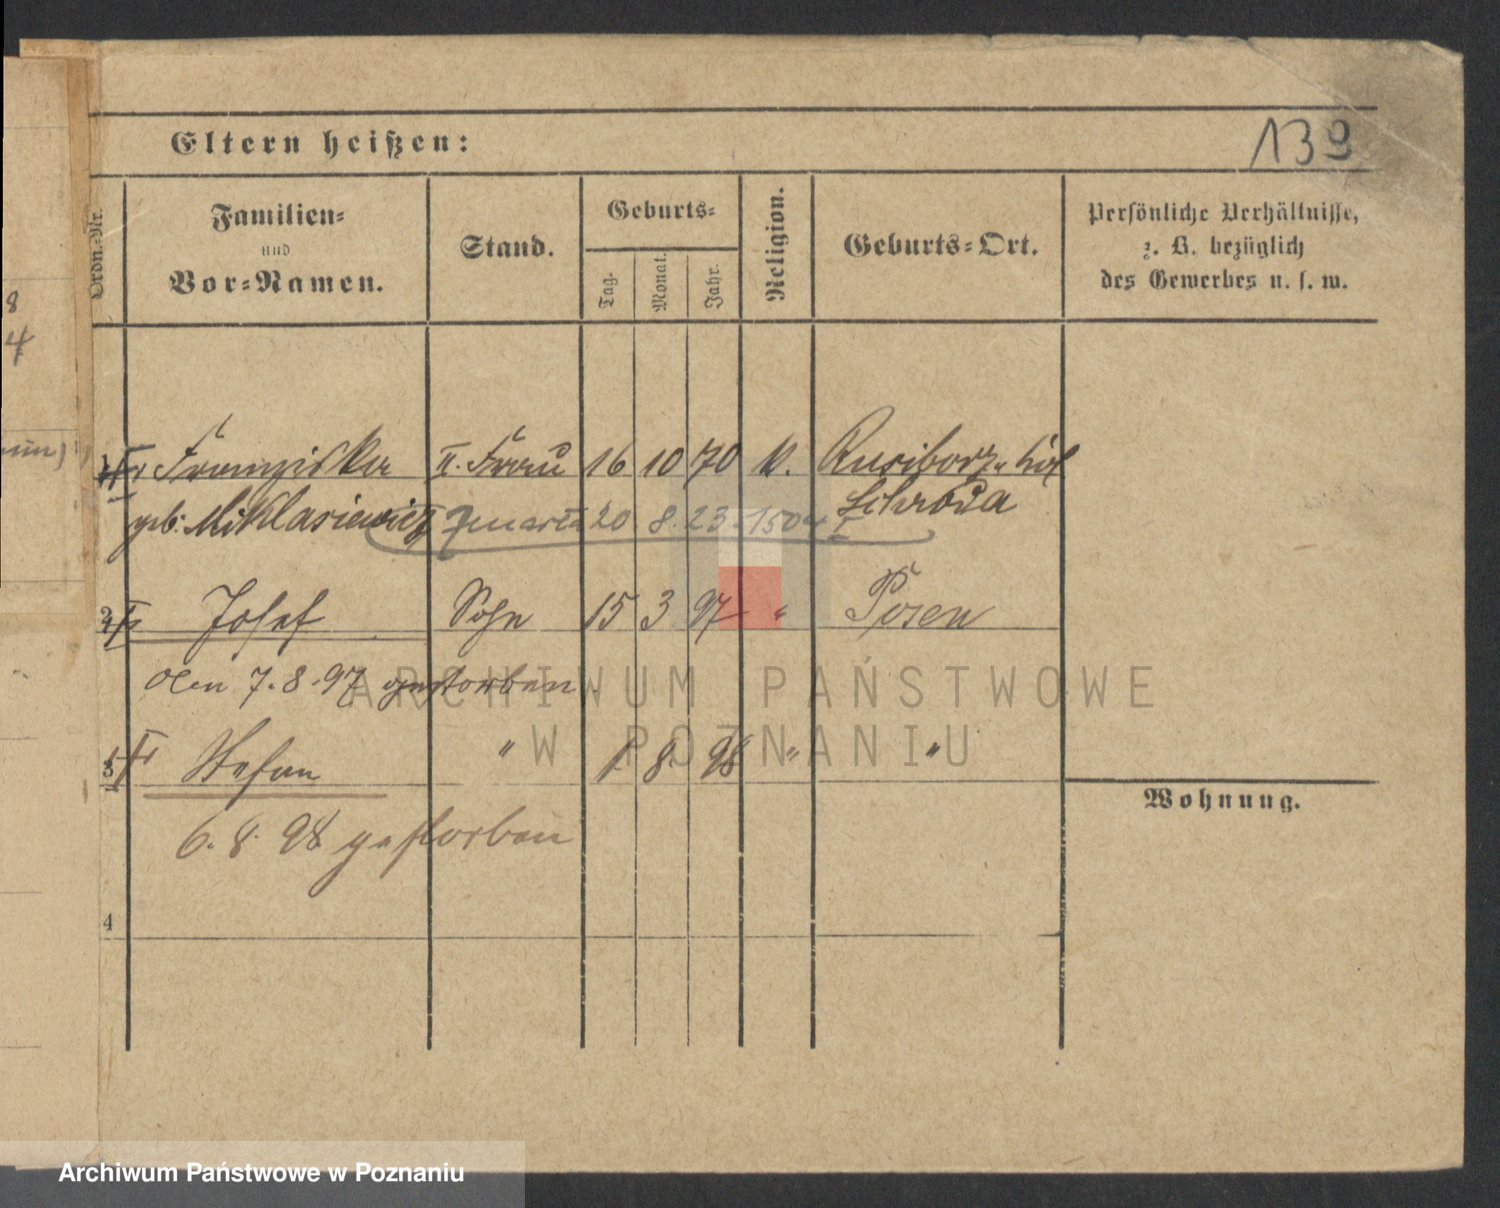 139
Eltern heißen:
Ordn.-Nr.
Familien-
und
Vor-Namen.
Stand.
Geburts-
Tag.
Monat.
Jahr.
Religion.
Geburts-Ort.
Persönliche Verhältnisse,
z. B. bezüglich
des Gewerbes u. s. w.
8
4
Franziska II. Frau 16 10 70 K.
geb. Miklasiewicz 20 8. 23 1504 Schroda
2 Josef Sohn 15 3 97 " Posen
den 7.8.97 gestorben.
3 Stefan " 1 8. 98 " "
6. 8. 98 gestorben
4
Wohnung.
ARCHIWUM PAŃSTWOWE
W POZNANIU
Archiwum Państwowe w Poznaniu